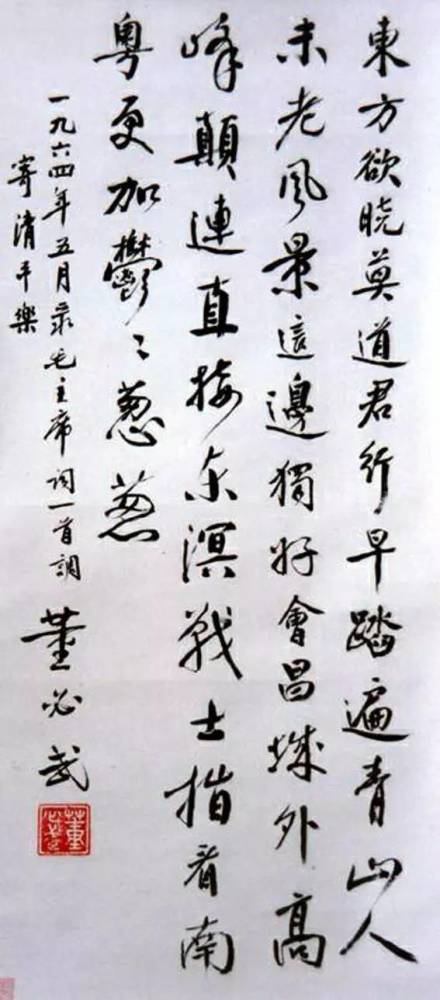 東方欲曉莫道君行早踏遍青山人
未老風景這邊獨好會昌城外高
峰顛連直接东溟戰士指看南
粵更加鬱〻葱葱
一九六四年五月录毛主席詞一首調
寄清平樂
董必武
董必武